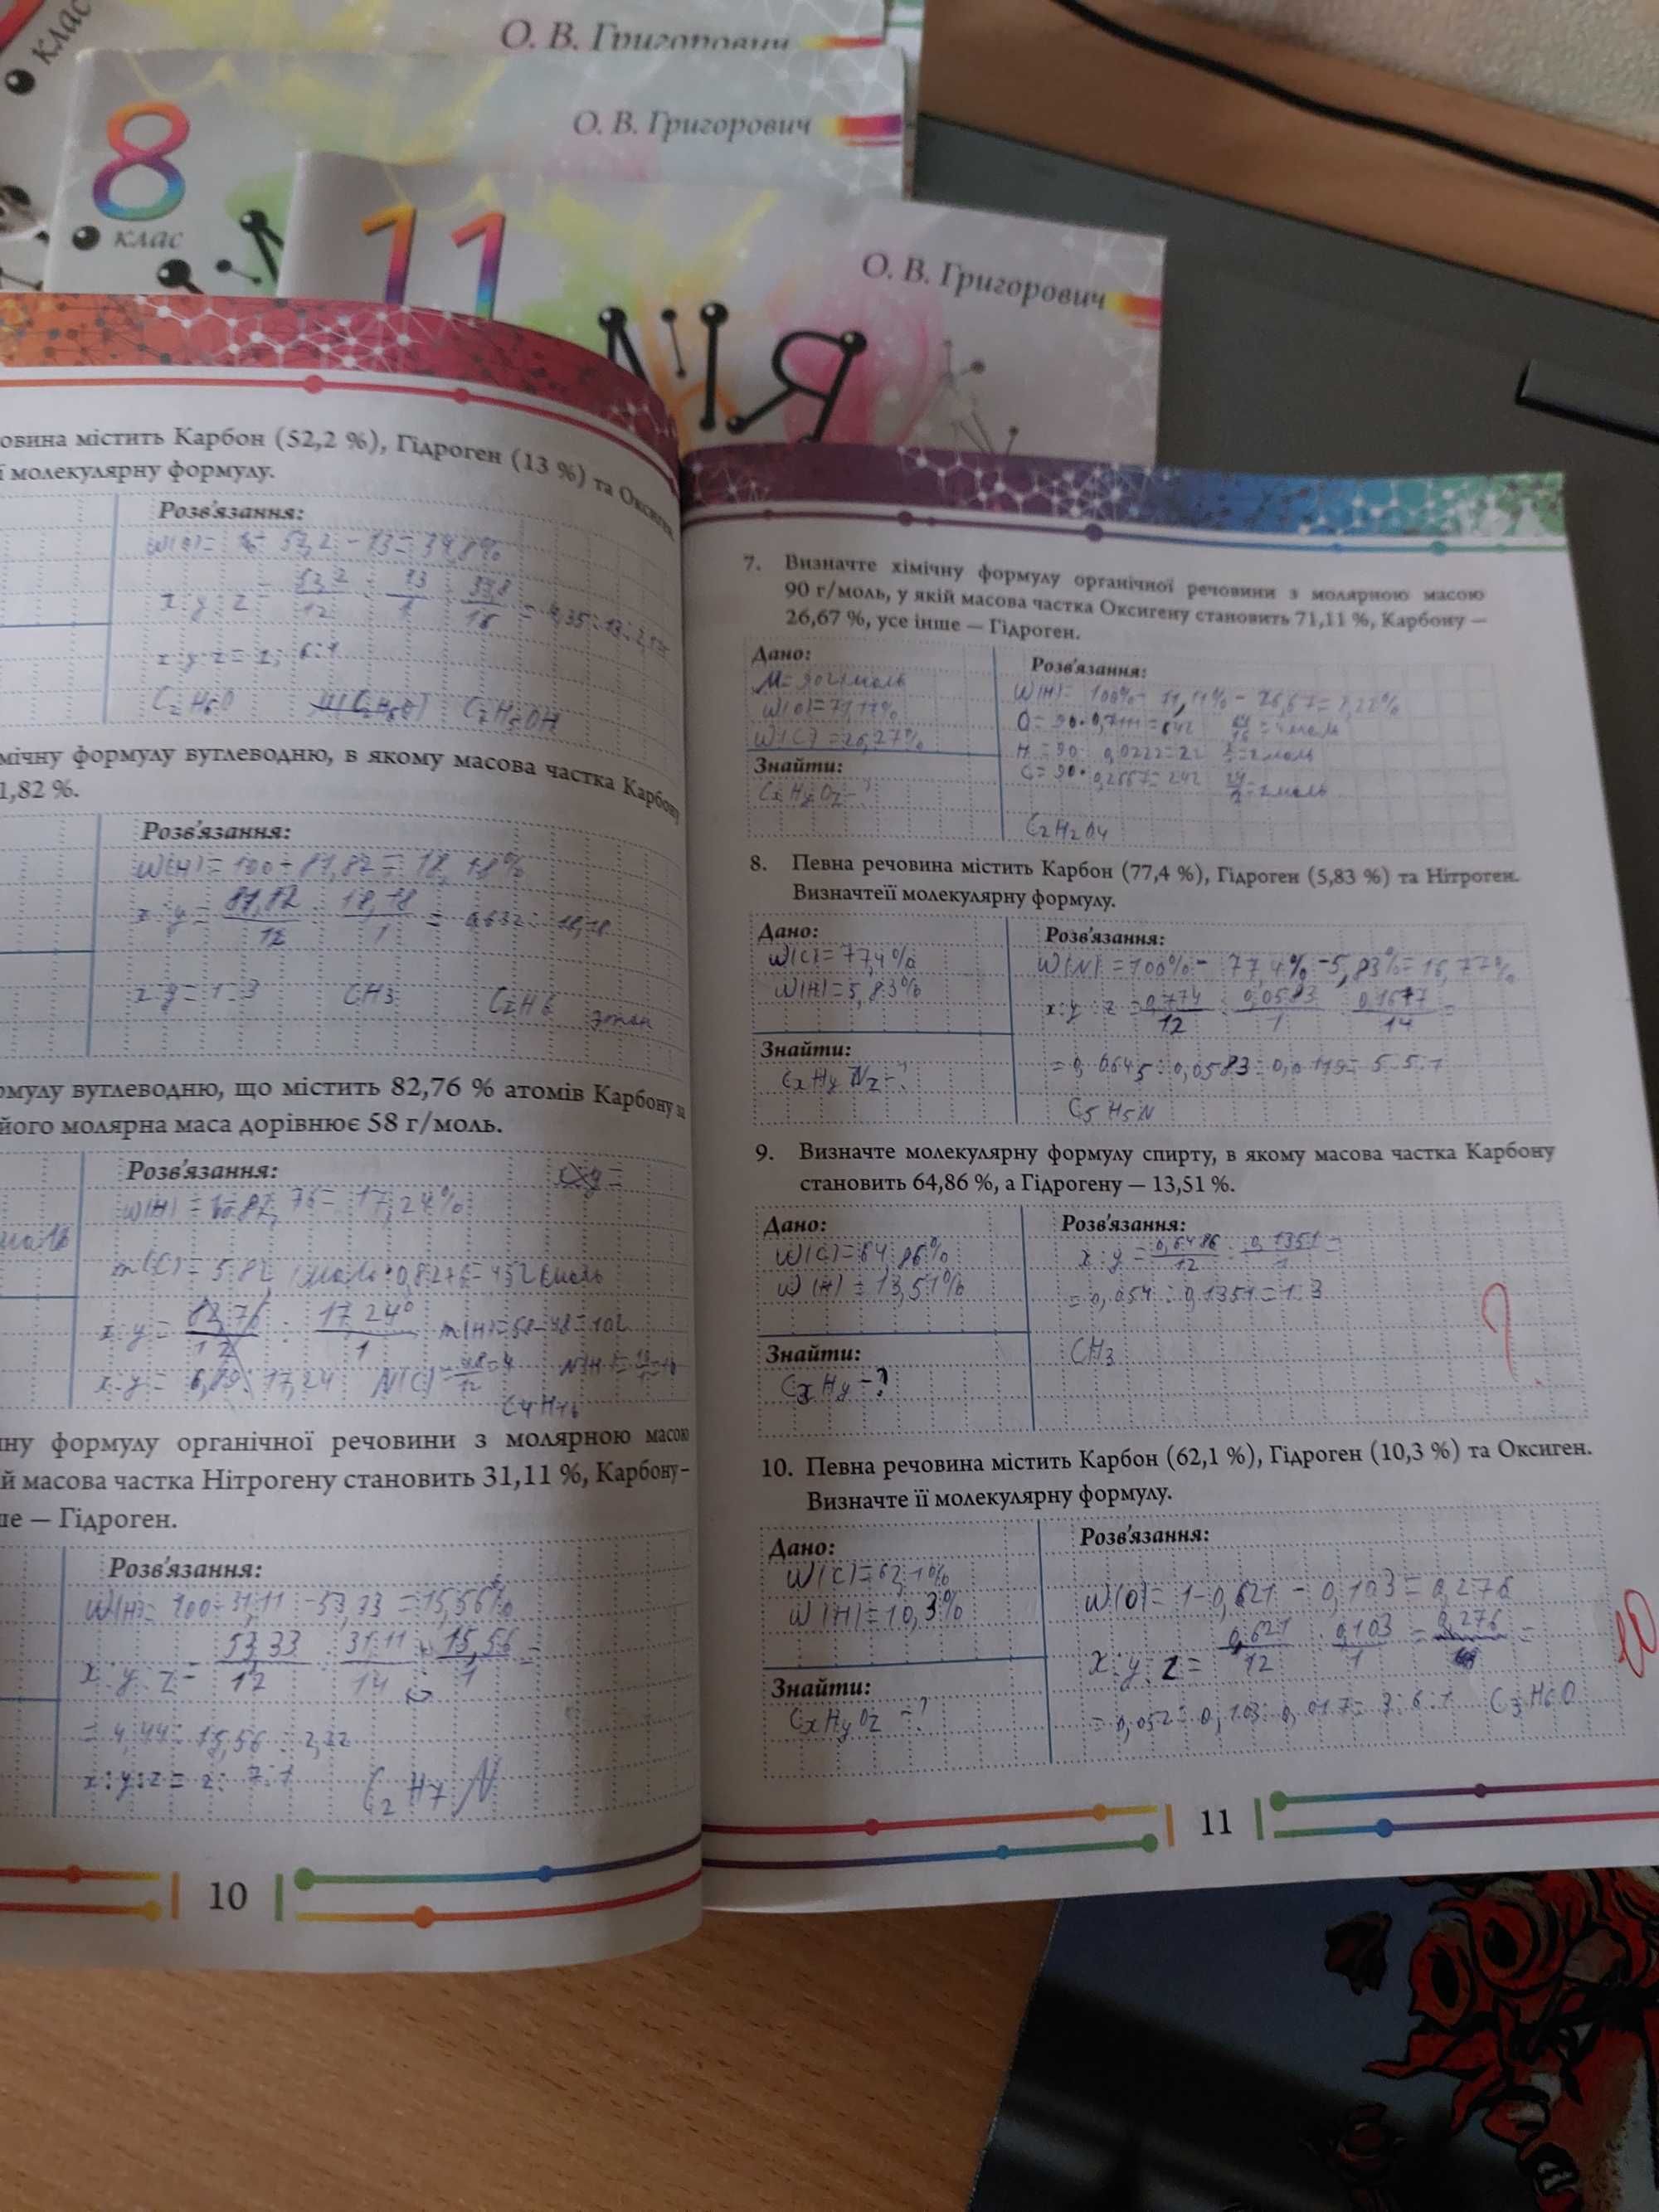 клас
О. В. Григорович
8
клас
О. В. Григорович
11
О. В. Григорович
ІЯ
овина містить Карбон (52,2 %), Гідроген (13 %) та Оксиген
ї молекулярну формулу.
Розв'язання:
x:y:z=2:6:1
C₂H₆O C₂H₅OH
мічну формулу вуглеводню, в якому масова частка Карбону
1,82 %.
Розв'язання:
W(H)=100-81,82=18,18%
x:y= 81,82/12 : 18,18/1 =
x:y=1:3 CH₃ C₂H₆ этан
рмулу вуглеводню, що містить 82,76 % атомів Карбону за
його молярна маса дорівнює 58 г/моль.
Розв'язання: x:y=
x:y= 82,76/12 : 17,24/1 m(H)=58-48=10г
x:y= 6,89:17,24 N(C)=48/12=4
ну формулу органічної речовини з молярною масою
й масова частка Нітрогену становить 31,11 %, Карбону-
ше — Гідроген.
Розв'язання:
W(H)=100-31,11-53,33=15,56%
x:y:z= 53,33/12 31,11/14 : 15,56/1 =
=4,44:15,56:2,22
x:y:z=2:7:1 C₂H₇N
10
7. Визначте хімічну формулу органічної речовини з молярною масою
90 г/моль, у якій масова частка Оксигену становить 71,11 %, Карбону —
26,67 %, усе інше — Гідроген.
Дано:
M=90г/моль
W(O)=71,11%
Знайти:
CxHyOz-?
Розв'язання:
C₂H₂O₄
8. Певна речовина містить Карбон (77,4 %), Гідроген (5,83 %) та Нітроген.
Визначтеїї молекулярну формулу.
Дано:
W(C)=77,4%
W(H)=5,83%
Знайти:
CxHyNz-?
Розв'язання:
W(N)=100%-77,4%-5,83%=16,77%
x:y:z=0,774/12 : 0,0583/1 : 0,1677/14 =
=0,0645:0,0583:0,0119=5:5:1
C₅H₅N
9. Визначте молекулярну формулу спирту, в якому масова частка Карбону
становить 64,86 %, а Гідрогену — 13,51 %.
Дано:
W(C)=64,86%
W(H)=13,51%
Знайти:
CxHy-?
Розв'язання:
x:y=0,6486/12 : 0,1351/1 =
=0,054:0,1351=1:3
CH₃
?
10. Певна речовина містить Карбон (62,1 %), Гідроген (10,3 %) та Оксиген.
Визначте її молекулярну формулу.
Дано:
W(C)=62,1%
W(H)=10,3%
Знайти:
CxHyOz-?
Розв'язання:
W(O)=1-0,621-0,103=0,276
x:y:z= 0,621/12 : 0,103/1 =
=0,052:0,103:0,017=3:6:1 C₃H₆O
10
11